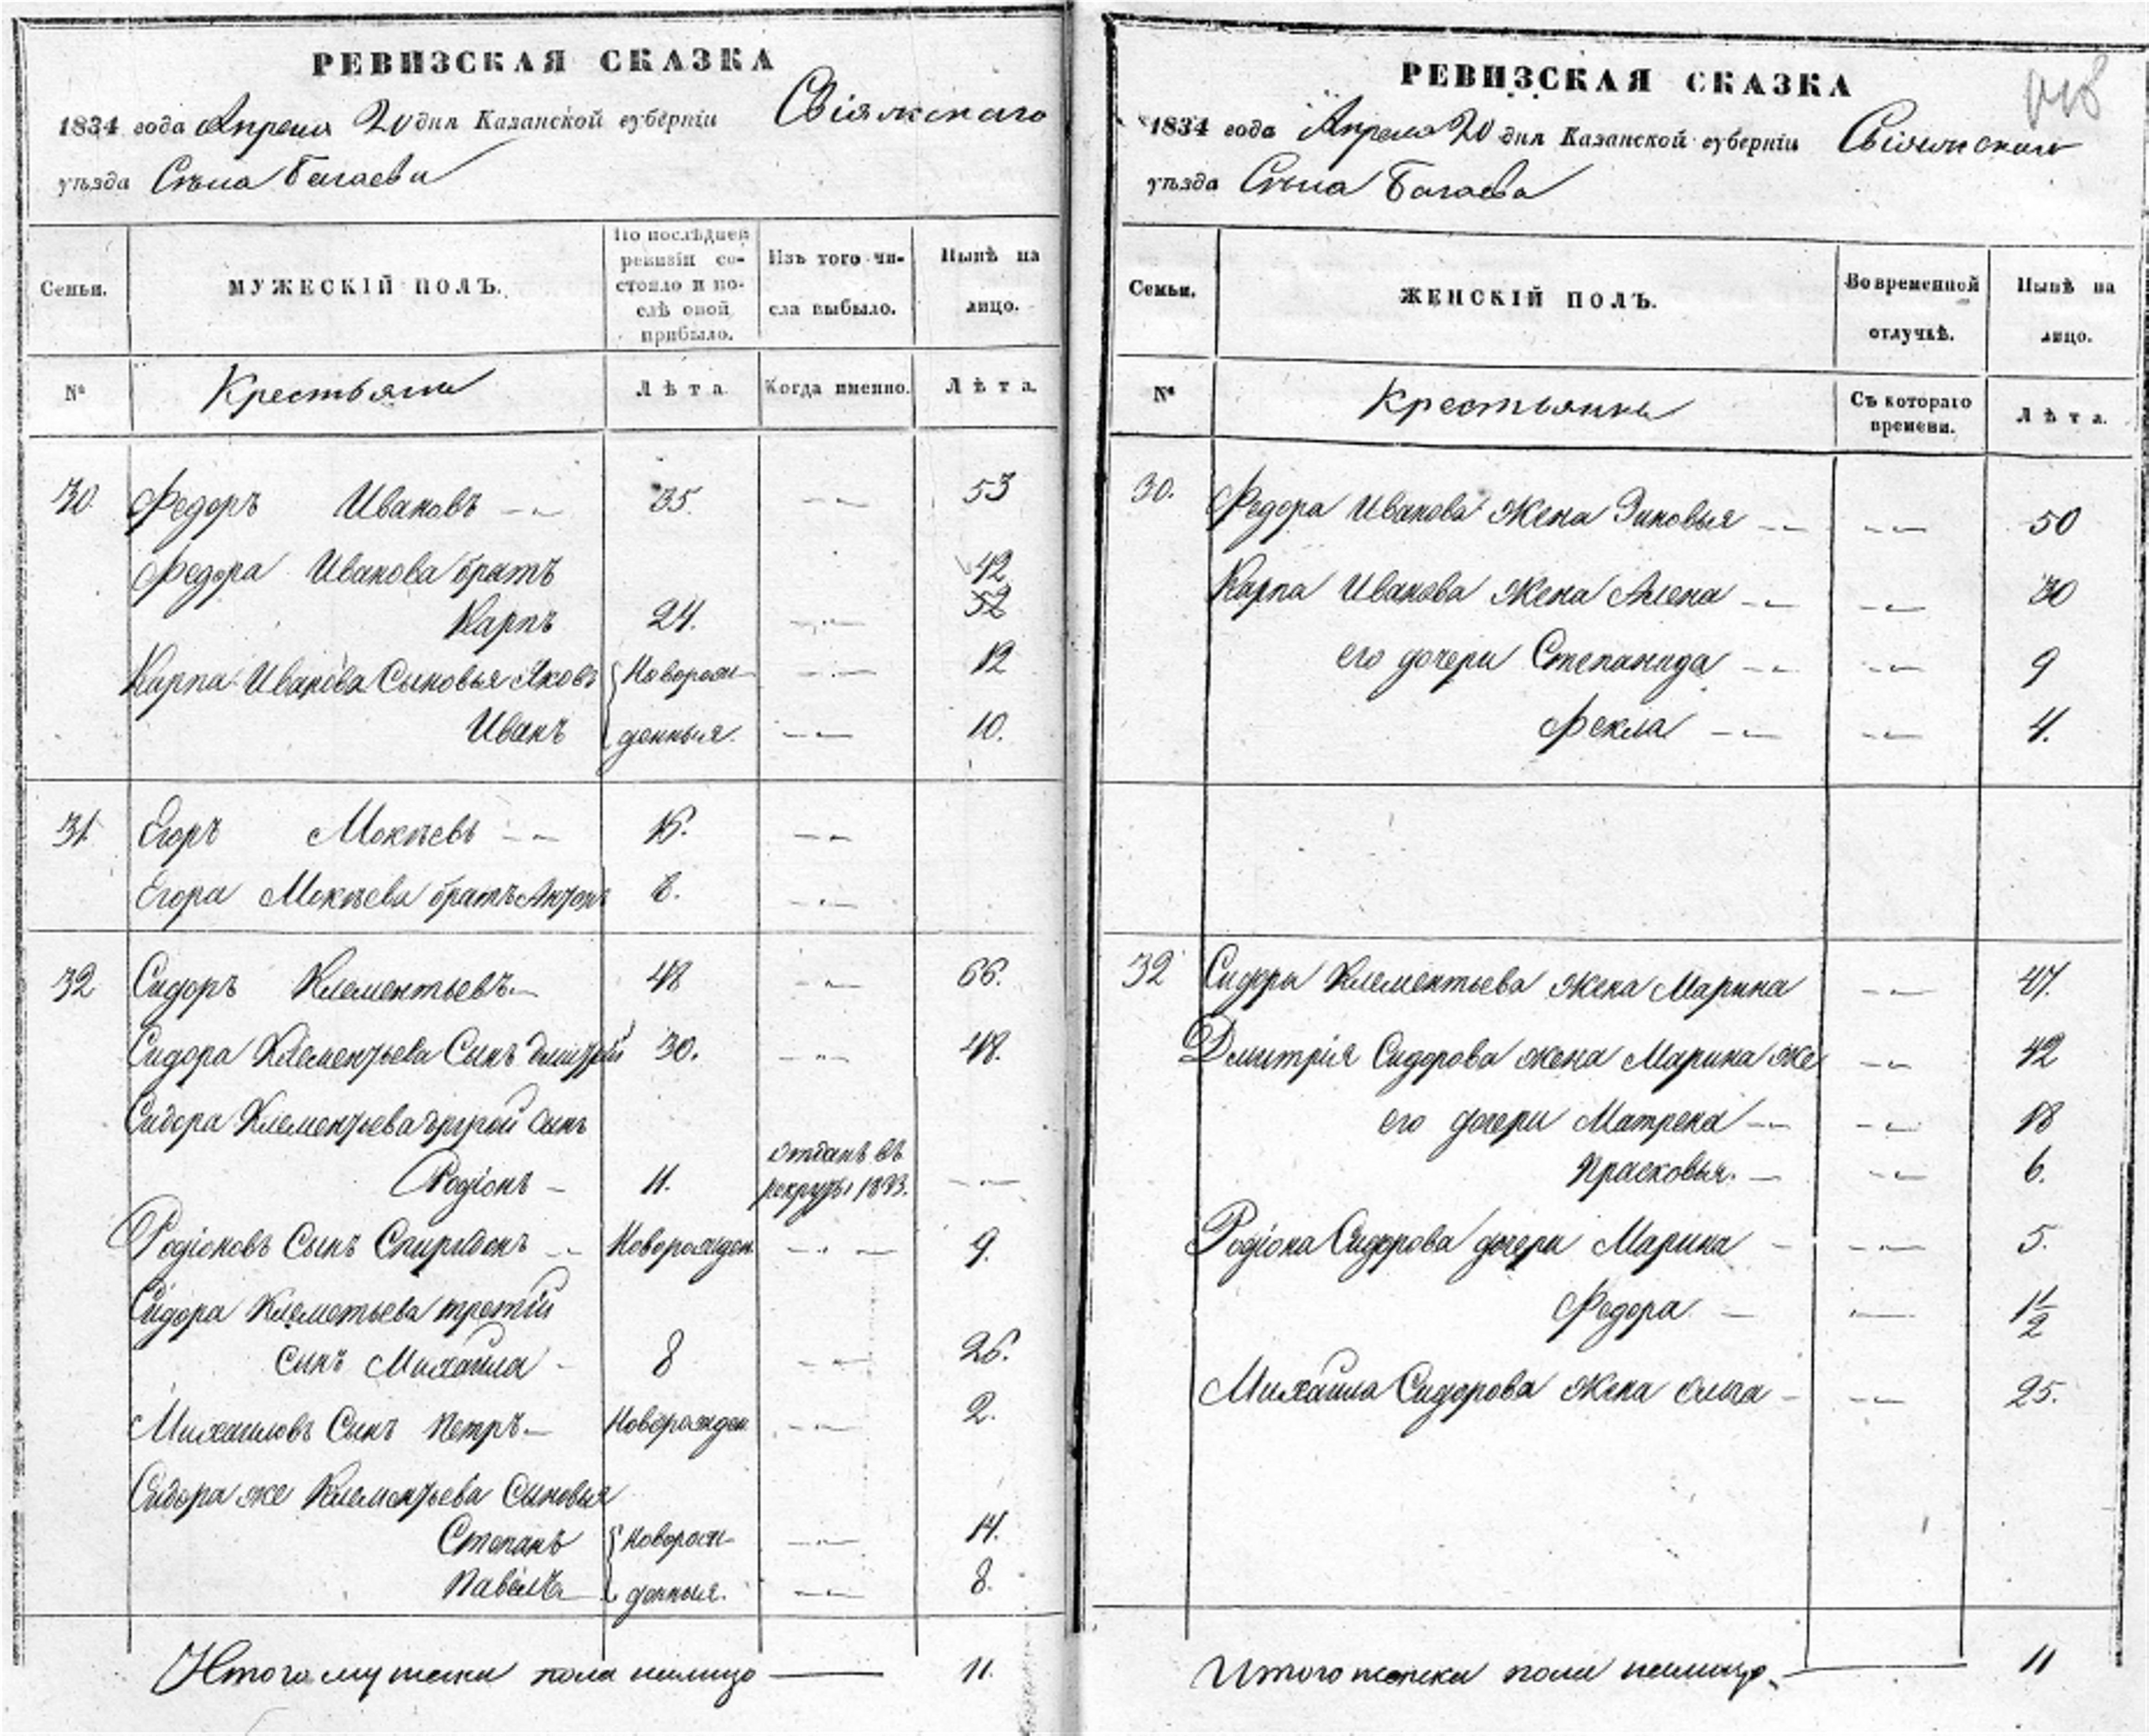 РЕВИЗСКАЯ СКАЗКА
1834 года Апреля 20 дня Казанской губернiи Свiяжскаго
уѣзда Сѣла Багаева
Семьи.
МУЖЕСКIЙ ПОЛЪ.
По послѣдней ревизiи со-
стояло и по-
слѣ оной
прибыло.
Изъ того чи-
сла выбыло.
Нынѣ на
лицо.
№
Крестьяне
Лѣта
Когда именно.
Лѣта.
30 Федоръ Ивановъ 35. 53
Федора Иванова братъ 42
Карпъ 24. 52
Карпа Иванова Сыновья Яковъ Новорож- 12
Иванъ денныя. 10.
31 Егоръ Мокѣевъ 16.
Егора Мокѣева братъ Антонъ 6.
32 Сидоръ Клементьевъ 48 66.
Сидора Клементьева Сынъ Дмитрiй 30. 48.
Сидора Клементьева другой сынъ
отданъ въ
Родiонъ 11. рекруты 1833.
Родiоновъ Сынъ Спиридонъ Новорожден 9.
Сидора Клеметьева третiй
сынъ Михайла 8 26.
Михайловъ Сынъ Петръ Новорожден 2.
Сидора же Клементьева Сыновья
Степанъ Новорож- 14.
Павелъ денныя. 8.
Итого мужска пола налицо 11.
РЕВИЗСКАЯ СКАЗКА
1834 года Апреля 20 дня Казанской губернiи Свiяжскаго
уѣзда Сѣла Багаева
Семьи.
ЖЕНСКIЙ ПОЛЪ.
Во временной
отлучкѣ.
Нынѣ на
лицо.
№
Крестьянки
Съ котораго
времени.
Лѣта.
30. Федора Иванова Жена Зиновья 50
Карпа Иванова Жена Алена 30
его дочери Степанида 9
Фекла 4.
32 Сидора Клементьева жена Марина 47.
Дмитрiя Сидорова жена Марина же 42
его дочери Матрена 18
Прасковья. 6.
Родiона Сидорова дочери Марина 5.
Федора 1½
Михайла Сидорова жена Ольга 25.
Итого женска пола налицо. 11